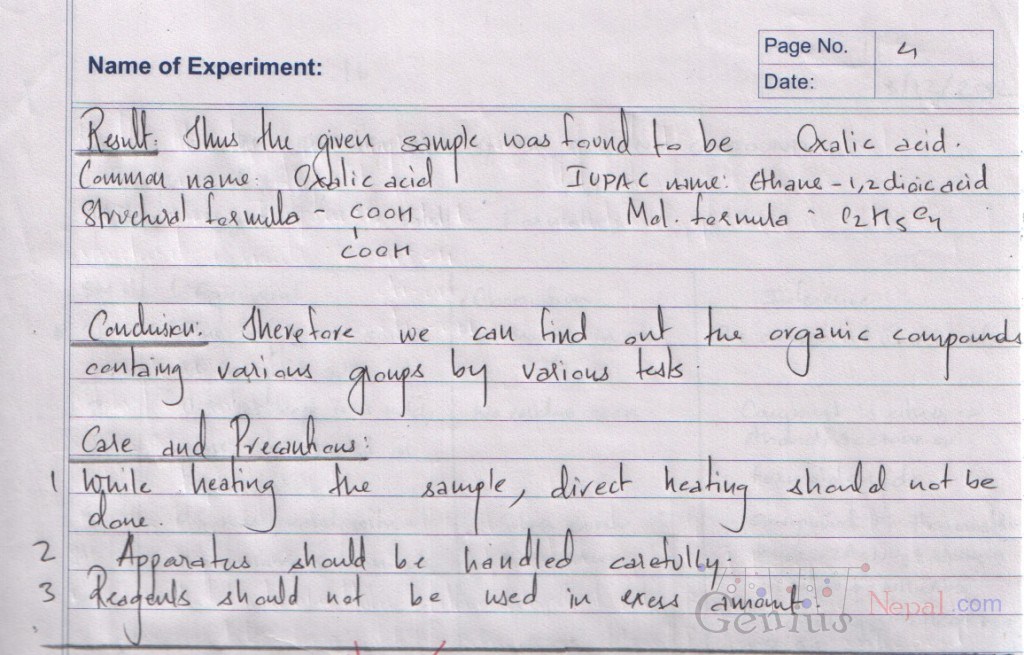 Page No. 4
Name of Experiment:
Date:
Result: Thus the given sample was found to be Oxalic acid.
Common name: Oxalic acid IUPAC name: Ethane-1,2 dioic acid
Structural formula - COOH Mol. formula -
COOH
Conclusion: Therefore we can find out the organic compounds
containg various groups by various tests.
Care and Precautions:
1 While heating the sample, direct heating should not be
done.
2 Apparatus should be handled carefully.
3 Reagents should not be used in exess amount.
Genius Nepal.com